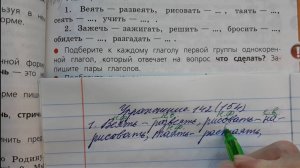 1. Веять — развеять, рисовать — ..., таять — ...,
сеять — ..., учить — ... .
2. Зажечь — зажигать, решить — ..., бросить — ...,
обидеть — ..., разгадать — ... .
● Подберите к каждому глаголу первой группы однокорен-
ной глагол, который отвечает на вопрос что сделать? За-
пишите пары глаголов.
Упражнение 142 (154)
1. Веять – развеять, рисовать – на-
рисовать, таять – растаять,